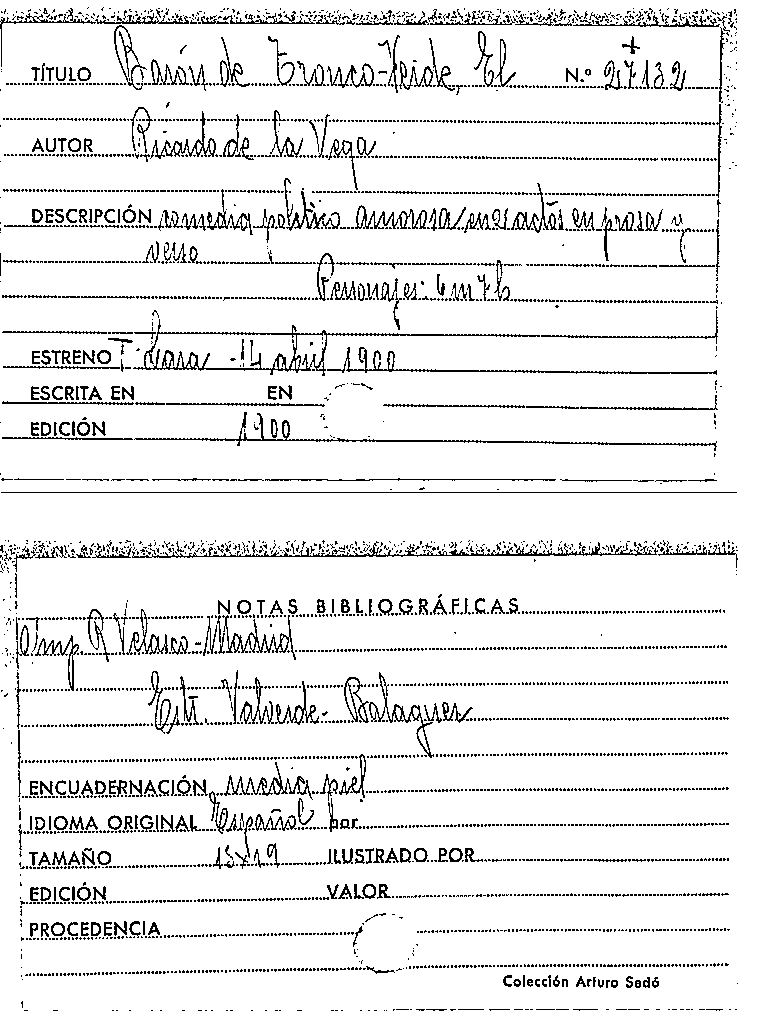 TÍTULO Barón de Tronco-Verde, El N.º 27132
AUTOR Ricardo de la Vega
DESCRIPCIÓN comedia político amorosa en actos en prosa y
verso
Personajes: 6m 7h
ESTRENO T. Lara - 14 abril 1900
ESCRITA EN EN
EDICIÓN 1900
NOTAS BIBLIOGRÁFICAS
Imp. R Velasco-Madrid
Valverde- Balaguer
ENCUADERNACIÓN media piel
IDIOMA ORIGINAL Español por
TAMAÑO 13x19 ILUSTRADO POR
EDICIÓN VALOR
PROCEDENCIA
Colección Arturo Sedó